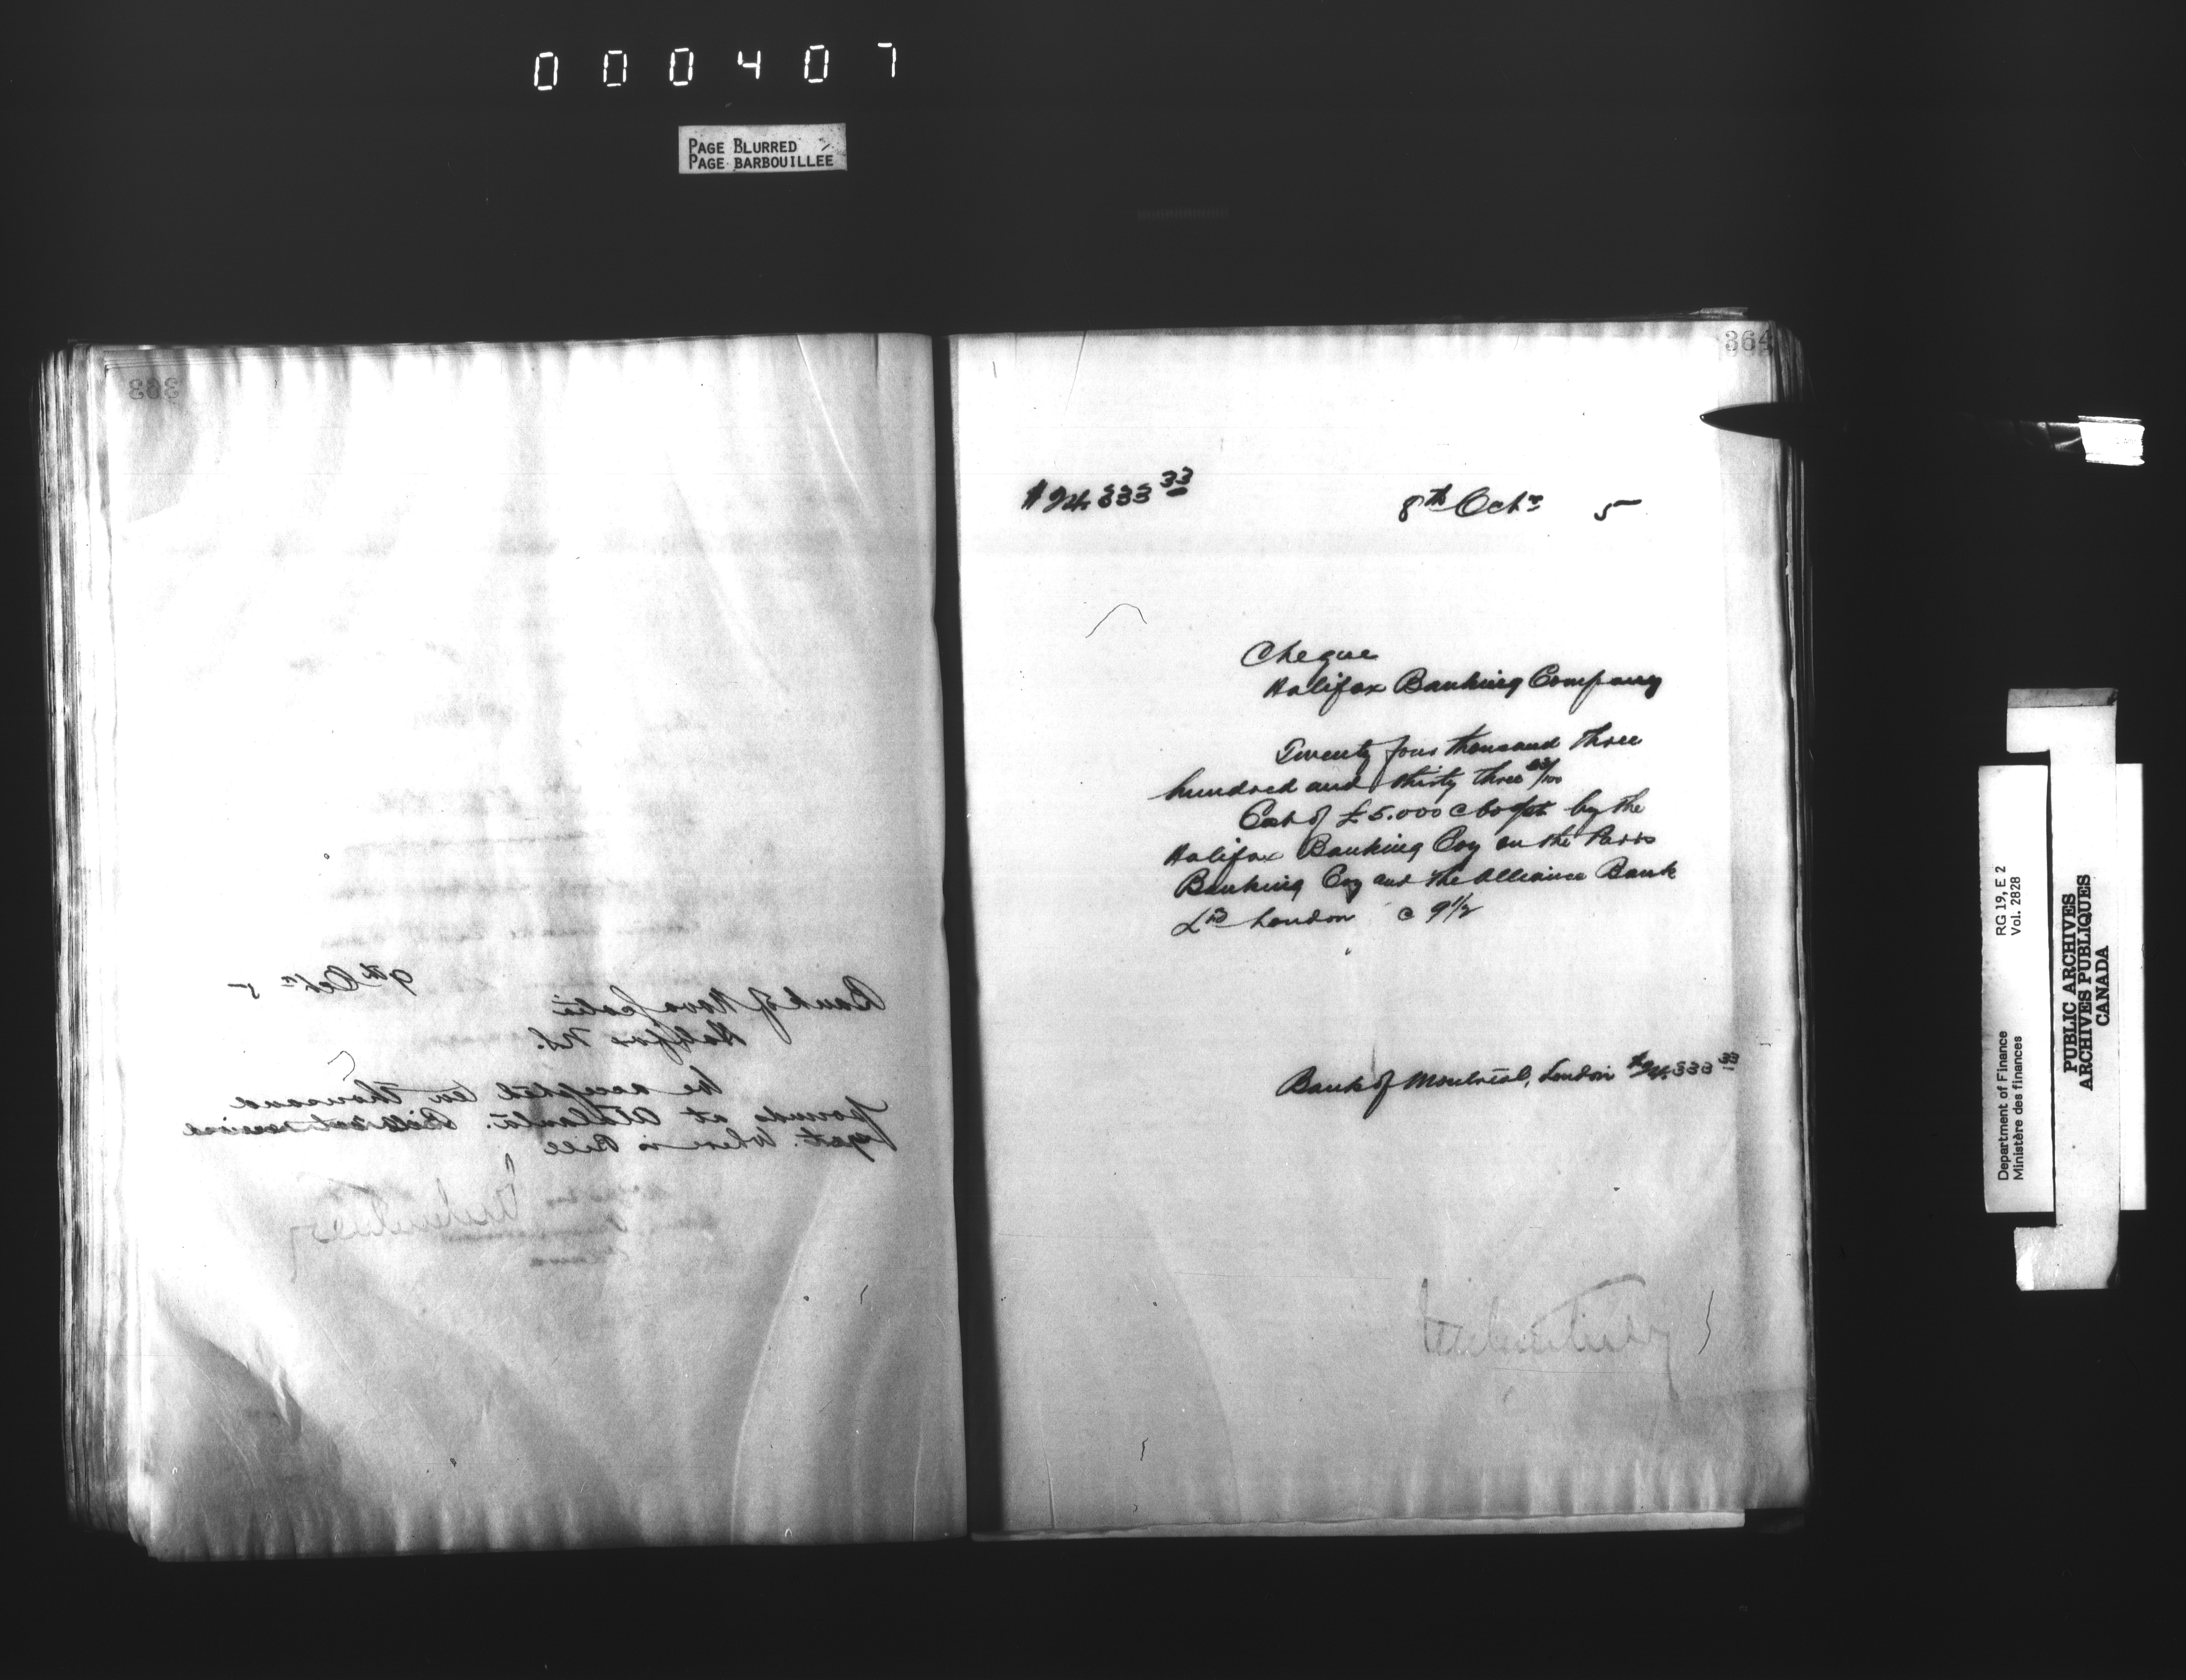 000407
PAGE BLURRED
PAGE BARBOUILLEE
363
9th Octr 5
Bank of Nova Scotia
Halifax N.S.
We accepted ten thousand
pounds at Atlanta. receive
yet. Where is Bill
364
$24.333 33
8th Octr 5
Cheque
Halifax Banking Company
Twenty four thousand three
hundred and thirty three 33/100
Cost of £5.000 @ 60 by the
Halifax Banking Coy on the Parrs
Banking Coy and the Alliance Bank
Ld London @ 9½
Bank of Montreal, London $24.333 33
Department of Finance
Ministère des finances
RG 19, E 2
Vol. 2828
PUBLIC ARCHIVES
ARCHIVES PUBLIQUES
CANADA